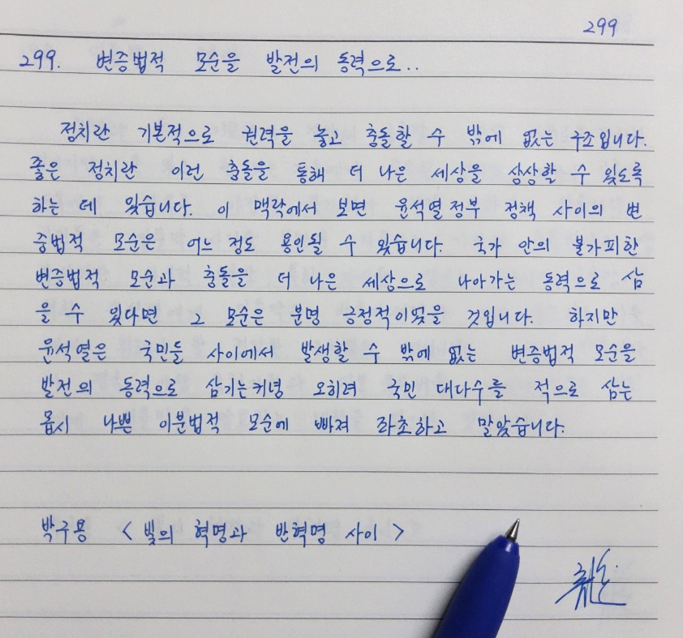 299
299. 변증법적 모순을 발전의 동력으로..
정치란 기본적으로 권력을 놓고 충돌할 수 밖에 없는 구조입니다.
좋은 정치란 이런 충돌을 통해 더 나은 세상을 상상할 수 있도록
하는 데 있습니다. 이 맥락에서 보면 윤석열정부 정책 사이의 변
증법적 모순은 어느 정도 용인될 수 있습니다. 국가 안의 불가피한
변증법적 모순과 충돌을 더 나은 세상으로 나아가는 동력으로 삼
을 수 있다면 그 모순은 분명 긍정적이었을 것입니다. 하지만
윤석열은 국민들 사이에서 발생할 수 밖에 없는 변증법적 모순을
발전의 동력으로 삼기는커녕 오히려 국민 대다수를 적으로 삼는
몹시 나쁜 이분법적 모순에 빠져 좌초하고 말았습니다.
박구용 < 빛의 혁명과 반혁명 사이 >